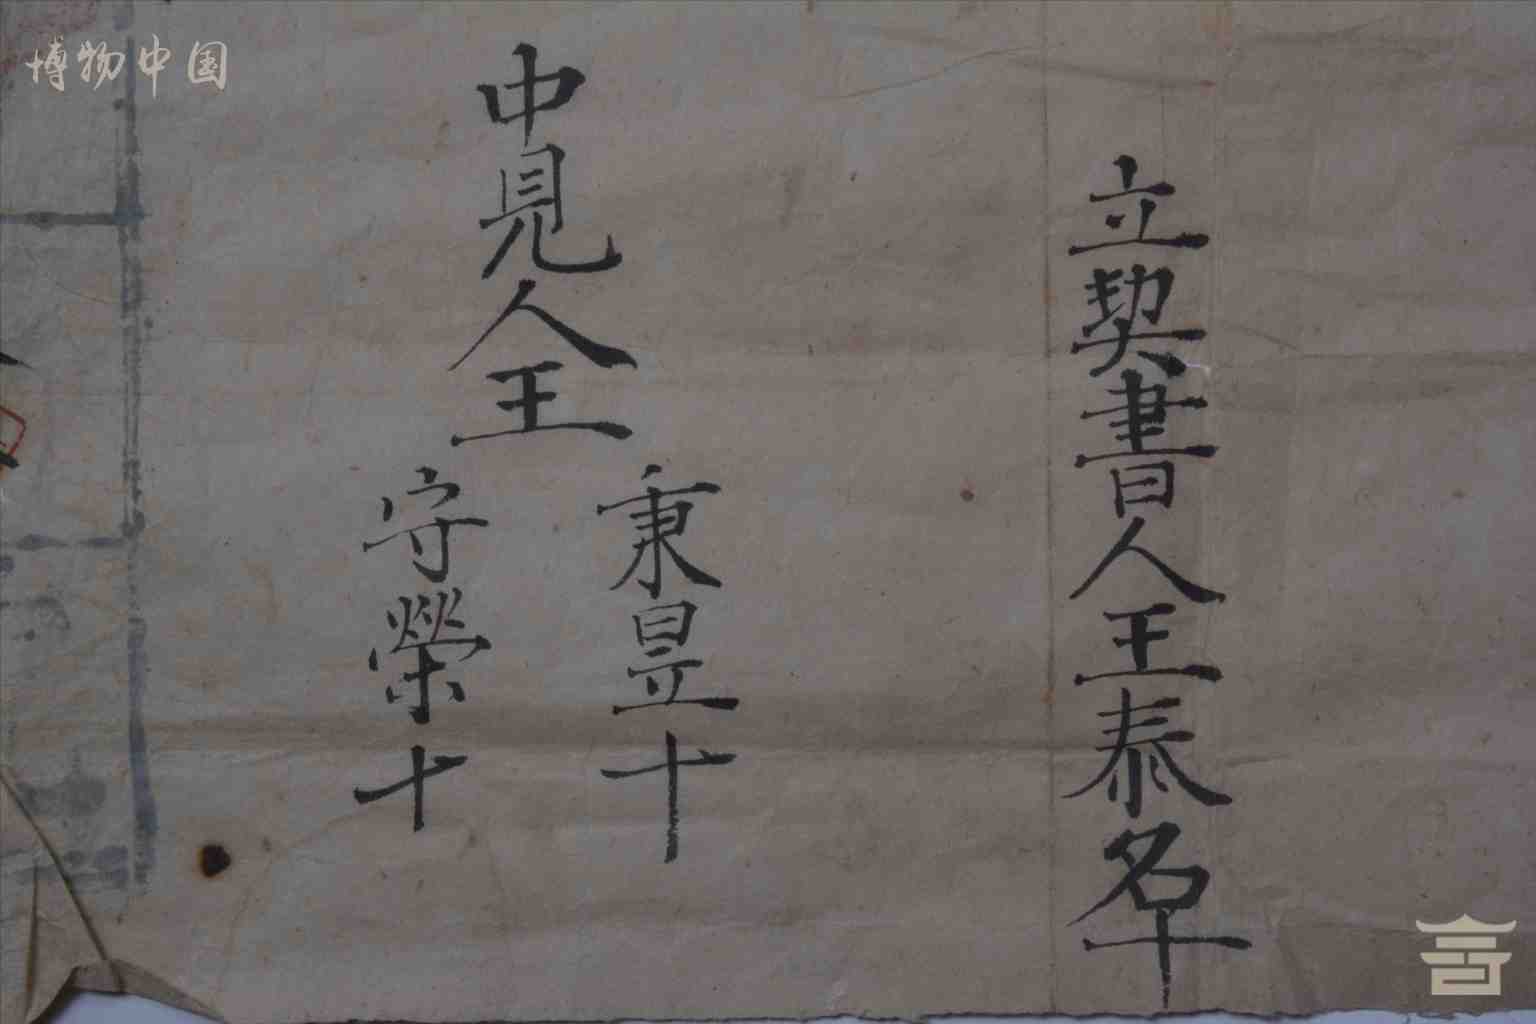 博物中国
立契書人王泰名十
中見人王
秉昱十
守榮十